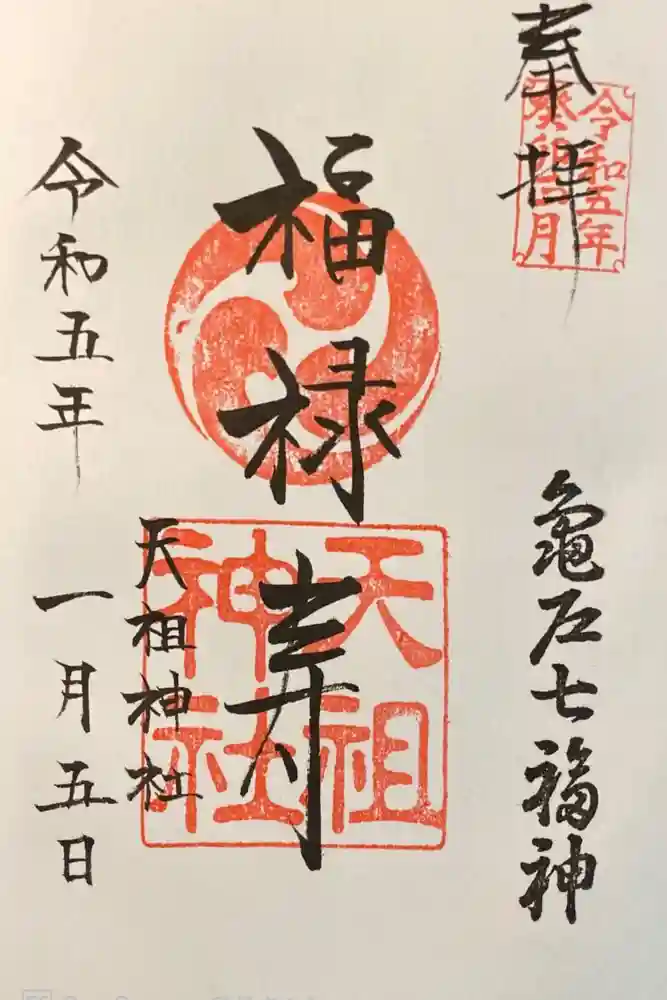 奉拝
令和五年
癸卯
月
亀戸七福神
福禄寿
天祖
神社
天祖神社
令和五年
一月五日